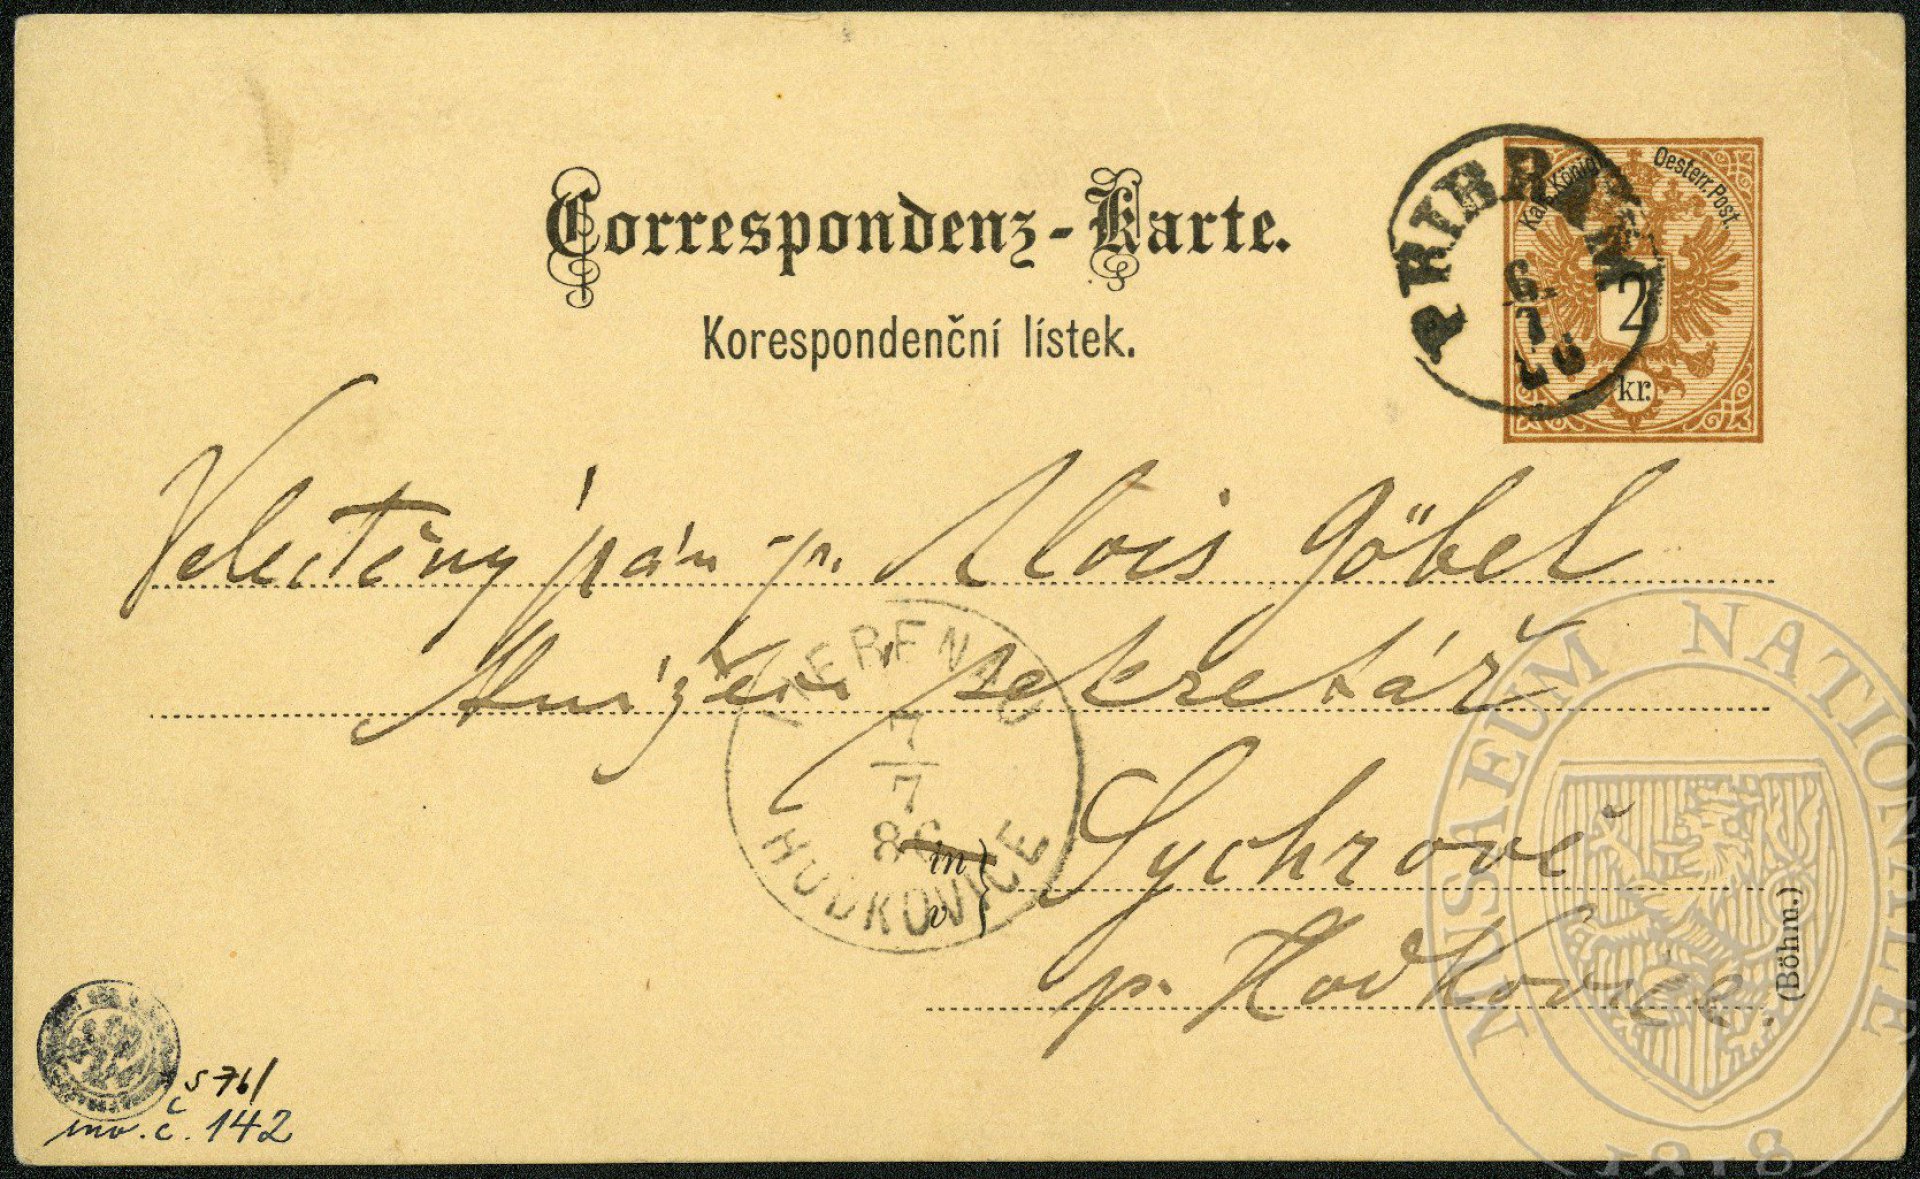 Correspondenz-Karte.
Korespondenční lístek.
Kais. Königl. Oesterr. Post.
2
kr.
PRIBRAM
6
7
Velectěný pán p. Alois Göbel
knížecí sekretář
7
7
86
HODKOVICE
in
v
Sychrově
p. Hodkovice.
(Böhm.)
S 76/
inv. č. 142
MUSEUM NATIONALE
1818